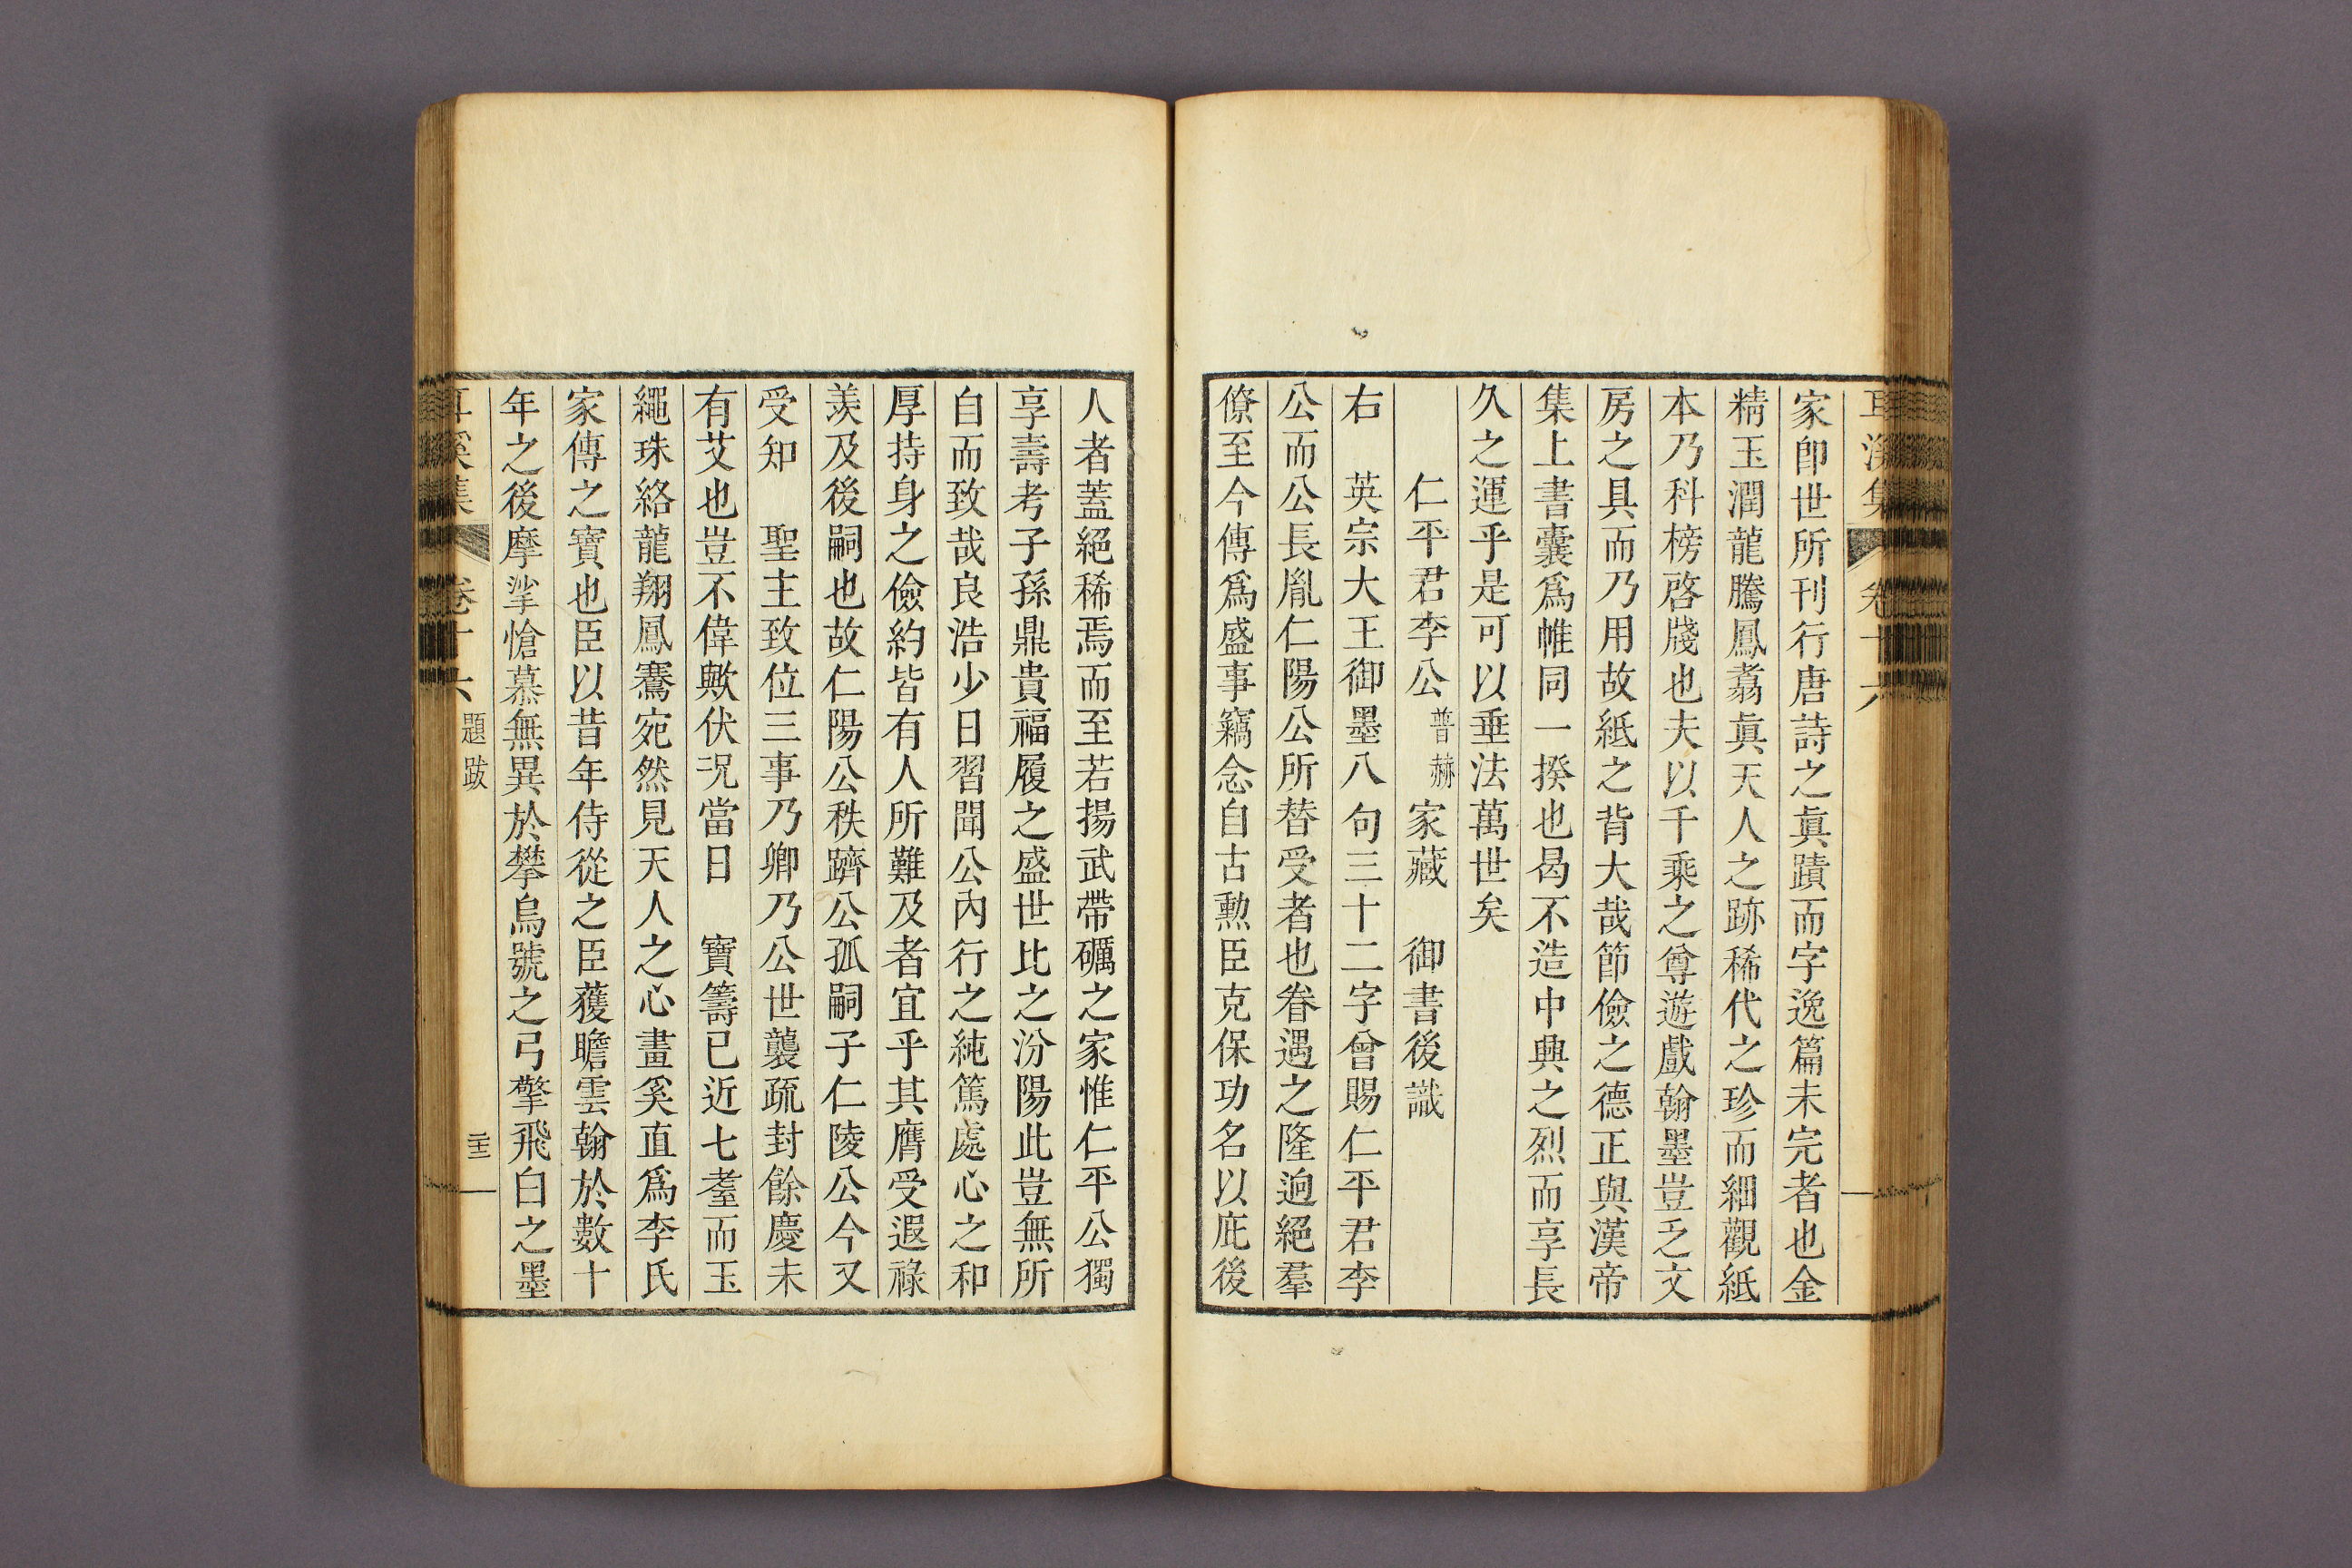 家卽世所刊行唐詩之眞蹟而字逸篇未完者也金
精玉潤龍騰鳳翥眞天人之跡稀代之珍而細觀紙
本乃科榜啓牋也夫以千乘之尊遊戲翰墨豈乏文
房之具而乃用故紙之背大哉節儉之德正與漢帝
集上書囊爲帷同一揆也曷不造中興之烈而享長
久之運乎是可以垂法萬世矣
仁平君李公普赫家藏　御書後識
右　英宗大王御墨八句三十二字曾賜仁平君李
公而公長胤仁陽公所替受者也眷遇之隆逈絕羣
僚至今傳爲盛事竊念自古勲臣克保功名以庇後
人者蓋絕稀焉而至若揚武帶礪之家惟仁平公獨
享壽考子孫鼎貴福履之盛世比之汾陽此豈無所
自而致哉良浩少日習聞公內行之純篤處心之和
厚持身之儉約皆有人所難及者宜乎其膺受遐祿
羨及後嗣也故仁陽公秩躋公孤嗣子仁陵公今又
受知　聖主致位三事乃卿乃公世襲疏封餘慶未
有艾也豈不偉歟伏况當日　寶籌已近七耋而玉
繩珠絡龍翔鳳騫宛然見天人之心畫奚直爲李氏
家傳之寶也臣以昔年侍從之臣獲瞻雲翰於數十
年之後摩挲愴慕無異於攀烏號之弓擎飛白之墨
耳溪集　卷十六　題跋　二十三